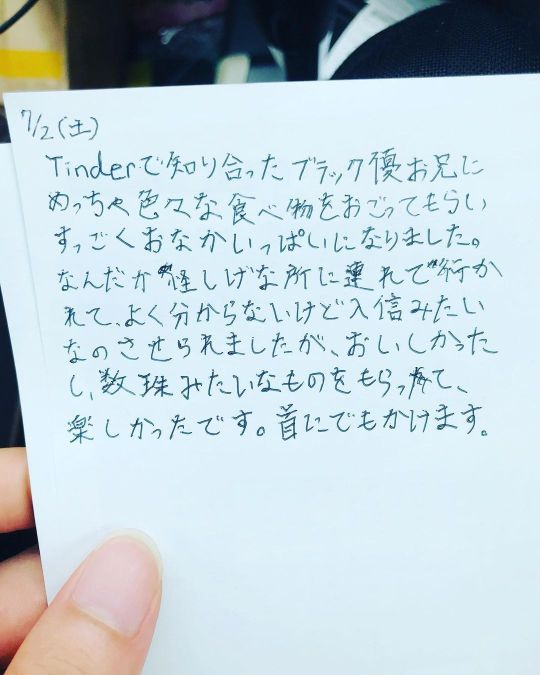 7/2(土)
Tinderで知り合ったブラック優お兄に
めっちゃ色々な食べ物をおごってもらい
すっごくおなかいっぱいになりました。
なんだか怪しげな所に連れて行か
れて、よく分からないけど入信みたい
なのさせられましたが、おいしかった
し、数珠みたいなものをもらって、
楽しかったです。首にでもかけます。